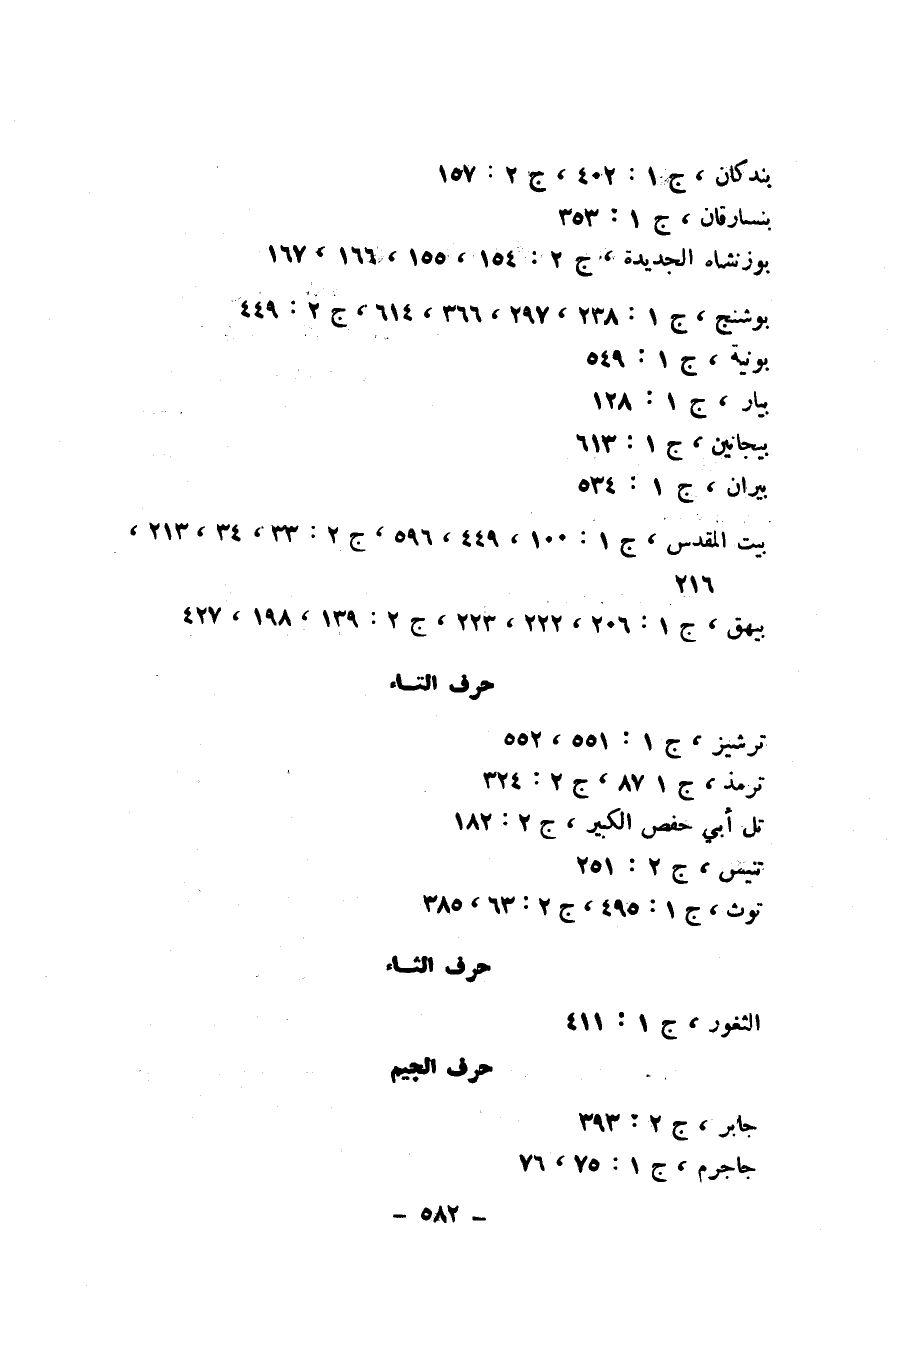 بندكان ، ج ١ : ٤٠٢ ، ج ٢ : ١٥٧
بنسارقان ، ج ١ : ٣٥٣
بوزنشاه الجديدة ، ج ٢ : ١٥٤ ، ١٥٥ ، ١٦٦ ، ١٦٧
بوشنج ، ج ١ : ٢٣٨ ، ٢٩٧ ، ٣٦٦ ، ٦١٤ ، ج ٢ : ٤٤٩
بونية ، ج ١ : ٥٤٩
بيار ، ج ١ : ١٢٨
بيجانين ، ج ١ : ٦١٣
بيران ، ج ١ : ٥٣٤
بيت المقدس ، ج ١ : ١٠٠ ، ٤٤٩ ، ٥٩٦ ، ج ٢ : ٣٣ ، ٣٤ ، ٢١٣ ،
٢١٦
بيهق ، ج ١ : ٢٠٦ ، ٢٢٢ ، ٢٢٣ ، ج ٢ : ١٣٩ ، ١٩٨ ، ٤٢٧
حرف التـاء
ترشيز ، ج ١ : ٥٥١ ، ٥٥٢
ترمذ ، ج ١ ٨٧ ، ج ٢ : ٣٢٤
تل أبي حفص الكبير ، ج ٢ : ١٨٢
تنيس ، ج ٢ : ٢٥١
توث ، ج ١ : ٤٩٥ ، ج ٢ : ٦٣ ، ٣٨٥
حرف الثـاء
الثغور ، ج ١ : ٤١١
حرف الجيم
جابر ، ج ٢ : ٣٩٣
جاجرم ، ج ١ : ٧٥ ، ٧٦
– ٥٨٢ –